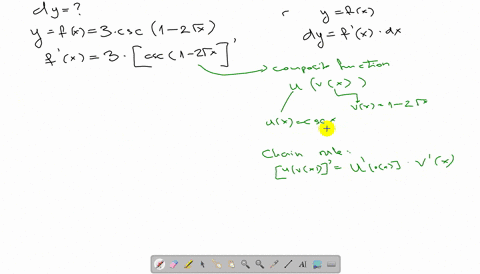 dy = ?
y = f(x) = 3·csc (1-2√x)
f'(x) = 3·[csc (1-2√x)]'
y = f(x)
dy = f'(x)·dx
composit function
u (v(x))
v(x) = 1-2√x
u(x) = csc x
Chain rule:
[u(v(x))]' = u'(v(x)) · v'(x)